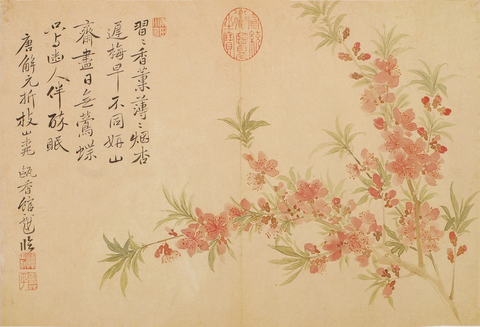 習〻香薰薄〻烟杏
遲梅早不同妍山
齋盡日無鶯蝶
只与幽人伴醉眠
唐解元折枝山桃 甌香館臨